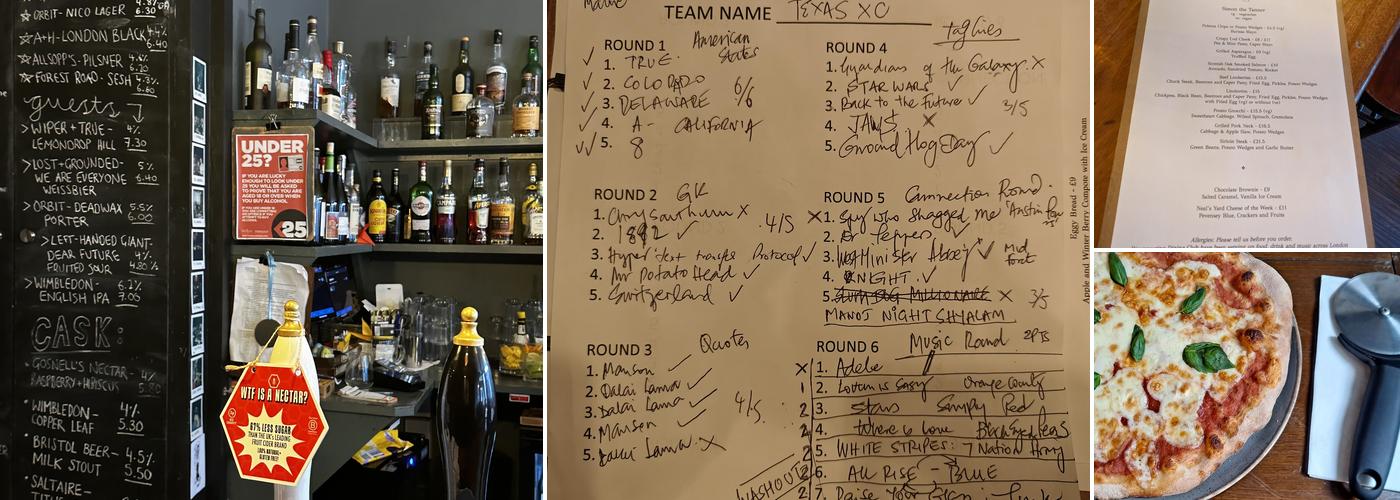 ORBIT- NICO LAGER 4.8%
6.30
A+H-LONDON BLACK 4.4%
6.40
ALLSOPP'S- PILSNER 4.6%
FOREST ROAD- SESH 4.3%
guests
>WIPER+TRUE- 4%
LEMONDROP HILL 7.30
>LOST+GROUNDED- 5%
WE ARE EVERYONE 6.40
WEISSBIER
>ORBIT-DEADWAX 5.5%
PORTER 6.00
>LEFT-HANDED GIANT-
DEAR FUTURE 4%
FRUITED SOUR 4.80 ½
>WIMBLEDON- 6.1%
ENGLISH IPA 7.00
CASK:
GOSNELL'S NECTAR- 4%
RASPBERRY+HIBISCUS 5.80
WIMBLEDON- 4%
COPPER LEAF 5.30
BRISTOL BEER- 4.5%
MILK STOUT 5.50
SALTAIRE-
UNDER
25?
IF YOU ARE LUCKY
ENOUGH TO LOOK UNDER
25 YOU WILL BE ASKED
TO PROVE THAT YOU ARE
AGED 18 OR OVER WHEN
YOU BUY ALCOHOL
<25
WTF IS A NECTAR?
67% LESS SUGAR
THAN THE UK'S LEADING
FRUIT CIDER BRAND
100% NATURAL+
GLUTEN FREE!
TEAM NAME TEXAS XC
ROUND 1 American States
1. TRUE
2. COLORADO 6/6
3. DELAWARE
4. A- CALIFORNIA
5. 8
ROUND 2 GK
1. Chrysanthumn X 4/5
2. 1892
3. Hyper text transfer Protocol
4. Mr Potato Head
5. Switzerland
ROUND 3 Quotes
1. Manson
2. Dalai Lama
3. Dalai Lama 4/5
4. Manson
5. Dalai Lama X
ROUND 4 taglines
1. Guardians of the Galaxy X
2. STAR WARS
3. Back to the Future 3/5
4. JAWS X
5. Ground Hog Day
ROUND 5 Connection Round.
X 1. Spy who shagged me Austin
2. Dr Peppers
3. Westminister Abbey
4. KNIGHT
5. SLUM DOG MILLIONAIRE X 3/5
MANOJ NIGHT SHYALAM
ROUND 6 Music Round 2PTS
X 1. Adele
1 2. Orange County
2 3. Stars Simply Red
2 4. Where is love Black eyed peas
2 5. WHITE STRIPES: 7 Nation Army
2 6. ALL RISE - BLUE
2 7. Raise Your Glass:
WASHOUT
Egg Bread - £9
Apple and Winter Berry Compote with Ice Cream
Simon the Tanner
Potato Wedges
Crispy Lvd Cheek - £8 / £11
Grilled Asparagus
Truffled Egg
Scottish Oak Smoked Salmon - £10
Avocado, Sundried Tomato, Rocket
Beef Limberton - £15.5
Chuck Steak, Beetroot and Caper Patty, Fried Egg, Pickles, Potato Wedges
Limberton - £15
Chickpea, Black Bean, Beetroot and Caper Patty, Fried Egg, Pickles, Potato Wedges
with Fried Egg (vg) or without (ve)
Potato Gnocchi - £15.5 (vg)
Sweetheart Cabbage, Wilted Spinach, Gremolata
Grilled Pork Neck - £16.5
Cabbage & Apple Slaw, Potato Wedges
Sirloin Steak - £21.5
Green Beans, Potato Wedges and Garlic Butter
Chocolate Brownie - £9
Salted Caramel, Vanilla Ice Cream
Neal's Yard Cheese of the Week - £11
Pevensey Blue, Crackers and Fruits
Allergies: Please tell us before you order.